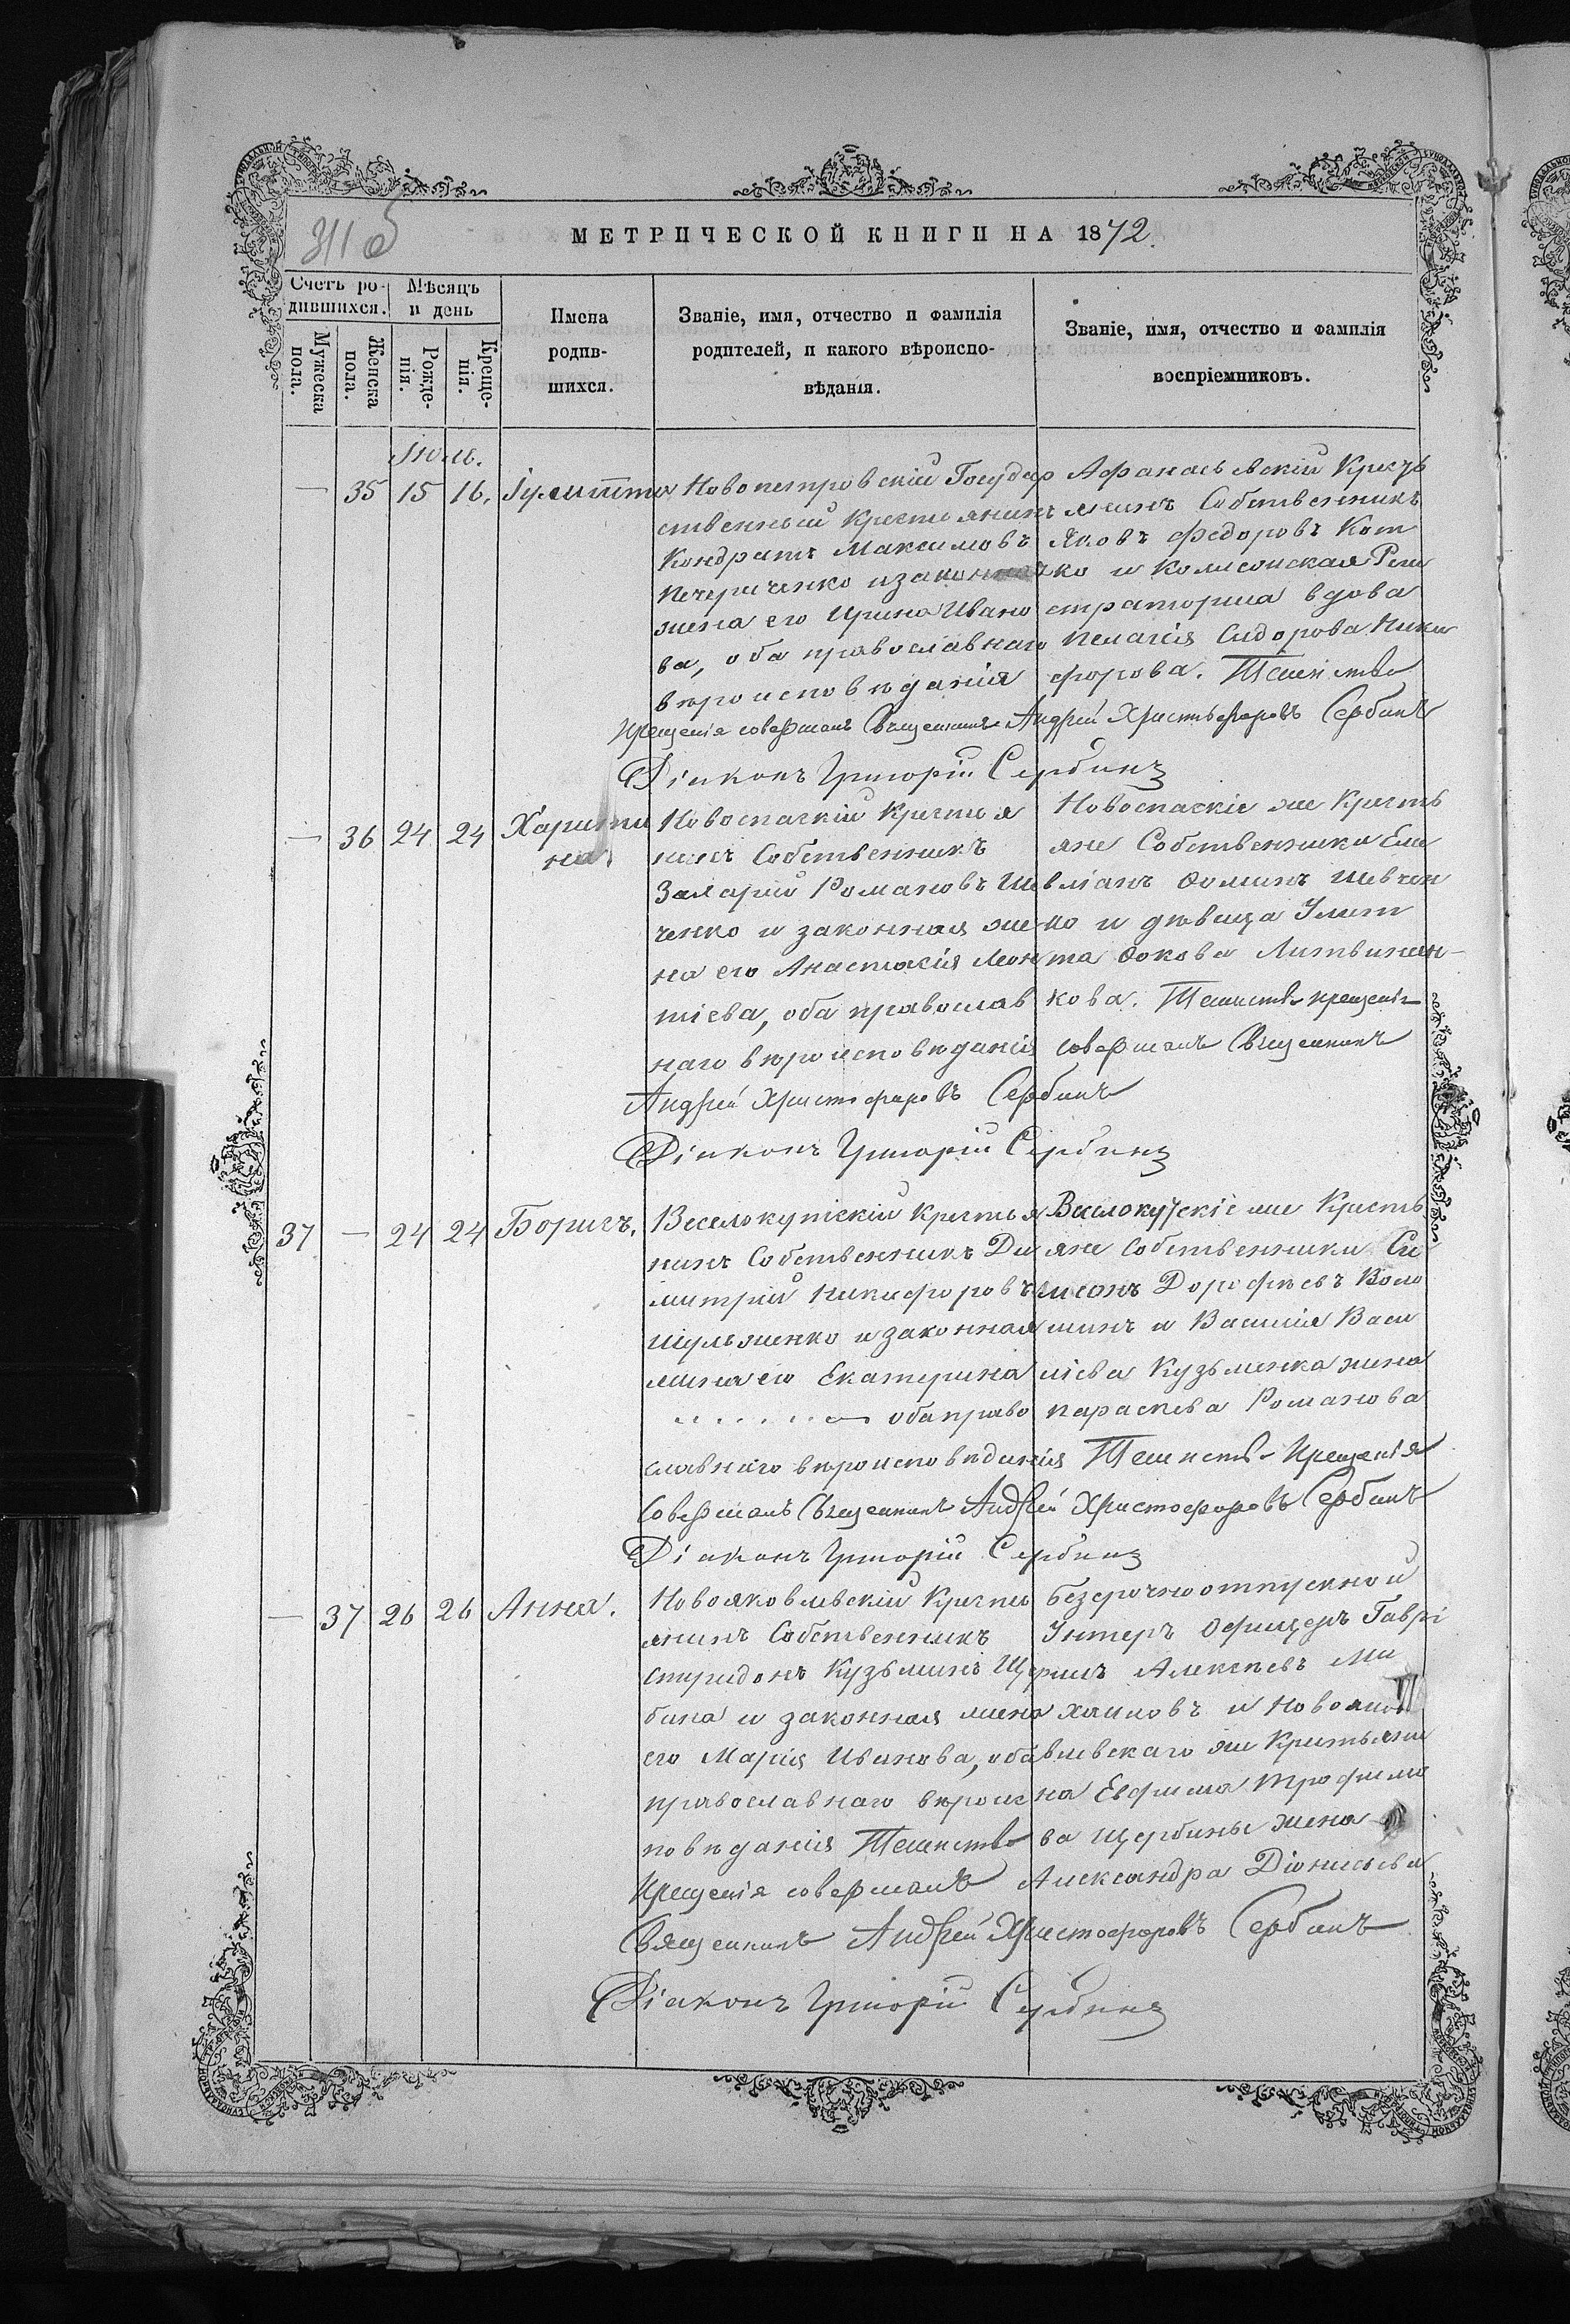 311 б
МЕТРИЧЕСКОЙ КНИГИ НА 1872.
Счетъ ро-
дившихся.
Мѣсяцъ
и день
Мужеска пола.
Женска пола.
Рожде-
нія.
Креще-
нія.
Имена
родив-
шихся.
Званіе, имя, отчество и фамилія
родителей, и какого вѣроиспо-
вѣданія.
Званіе, имя, отчество и фамилія
воспріемниковъ.
Іюль.
— 35 15 16. Іулитта
Новопетровскій Государ
ственный Крестьянинъ
Кондратъ Максимовъ
Печериченко и законная
жена его Ирина Ивано
ва, оба православнаго
вѣроисповѣданія
Афанасьевскій Кресть
янинъ Собственникъ
Яковъ Федоровъ Кот
ко и Колисонская Реги
страторша вдова
Пелагія Сидорова Ники
форова. Таинство
Крещенія совершалъ Священникъ Андрей Христофоровъ Сербинъ
Діаконъ Григорій Сербинъ
— 36 24 24 Харити
на
Новоспаскій Крестья
нинъ Собственникъ
Захарій Романовъ Шев
ченко и законная же
на его Анастасія Леон
тіева, оба православ
наго вѣроисповѣданія
Новоспаскіе же Кресть
яне Собственники Еми
ліанъ Ѳоминъ Шевчен
ко и дѣвица Улит
та Ѳокова Литвинен-
кова. Таинство крещенія
совершалъ Священникъ
Андрей Христофоровъ Сербинъ
Діаконъ Григорій Сербинъ
37 — 24 24 Борисъ.
Веселокутскій Крестья
нинъ Собственникъ Ди
митрій Никифоровъ
Шульженко и законная
жена его Екатерина
. . . . . . — оба право
славнаго вѣроисповѣданія
Веселокутскіе же Кресть
яне Собственники Си
меонъ Дорофѣевъ Воло
шинъ и Василія Васи
ліева Кузьменка жена
Параскева Романова
Таинство Крещенія
Совершалъ Священникъ Андрей Христофоровъ Сербинъ
Діаконъ Григорій Сербинъ
— 37 26 26 Анна.
Новояковлевскій Кресть
янинъ Собственникъ
Спиридонъ Кузьминъ Щер
бина и законная жена
его Марія Иванова, оба
православнаго вѣроис
повѣданія Таинство
Крещенія совершалъ
безсрочноотпускной
Унтеръ Офицеръ Гаврі
илъ Алексѣевъ Ми
хайловъ и Новояков
левскаго же Крестьяни
на Евфима Трофимо
ва Щербины жена
Александра Діонисьева
Священникъ Андрей Христофоровъ Сербинъ
Діаконъ Григорій Сербинъ